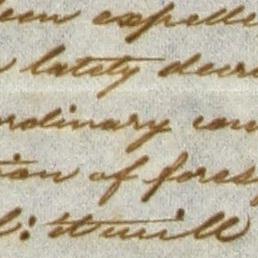 been expelle
lately decr
ordinary cou
tion of fores
l: it will